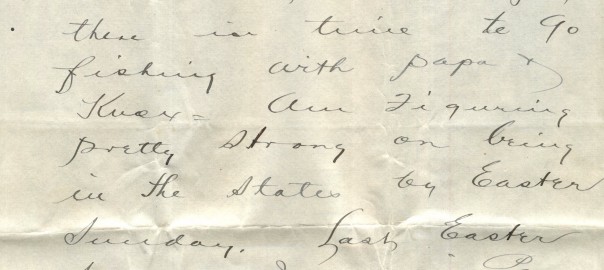 there is time to go
fishing with papa &
Knox = Am Figuring
pretty strong on being
in the States by Easter
Sunday. Last Easter